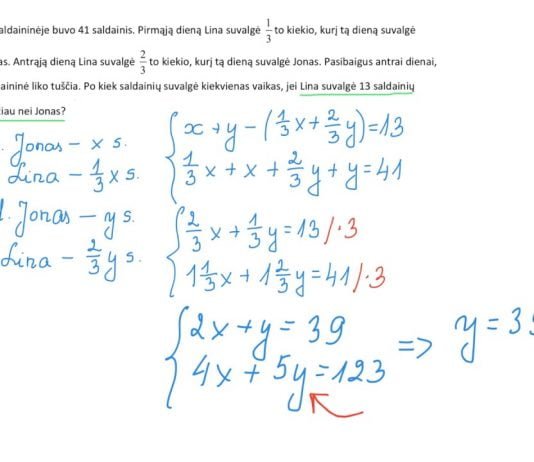 aldaininėje buvo 41 saldainis. Pirmąją dieną Lina suvalgė 1/3 to kiekio, kurį tą dieną suvalgė
as. Antrąją dieną Lina suvalgė 2/3 to kiekio, kurį tą dieną suvalgė Jonas. Pasibaigus antrai dienai,
aininė liko tuščia. Po kiek saldainių suvalgė kiekvienas vaikas, jei Lina suvalgė 13 saldainių
žiau nei Jonas?
. Jonas – x s.
Lina – 1/3 x s.
. Jonas – y s.
Lina – 2/3 y s.
{ x + y – (1/3 x + 2/3 y) = 13
1/3 x + x + 2/3 y + y = 41
{ 2/3 x + 1/3 y = 13 /·3
1 1/3 x + 1 2/3 y = 41 /·3
{ 2x + y = 39
4x + 5y = 123
=> y = 3